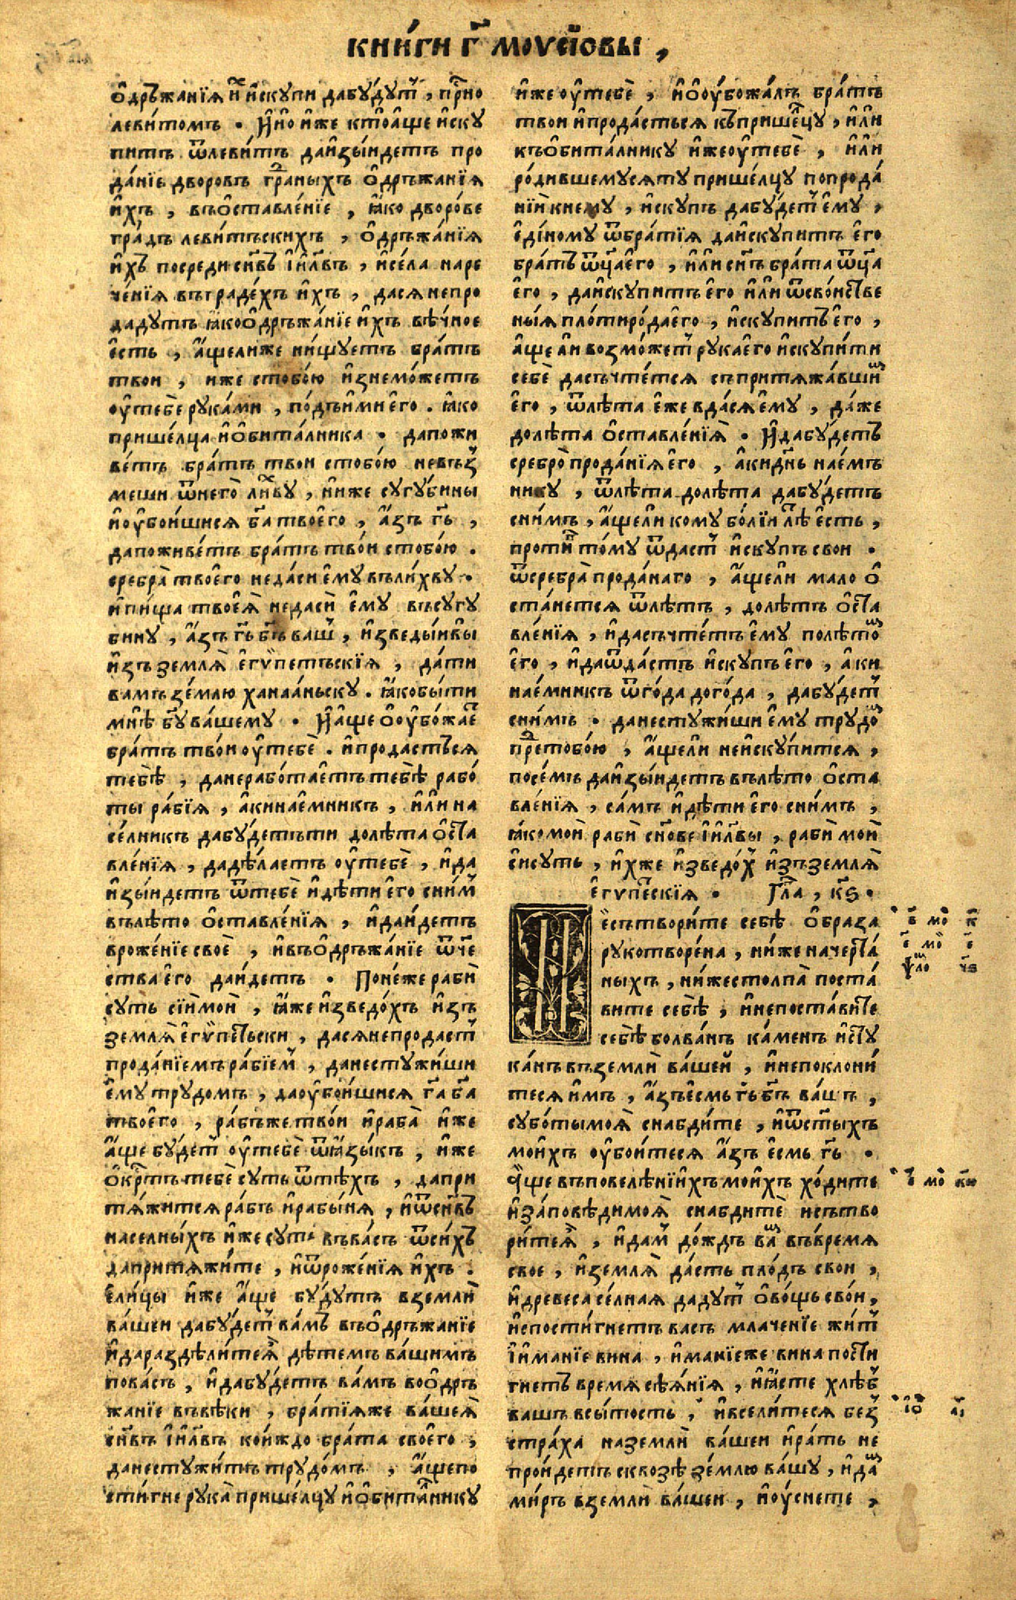 книги г҃ моѵсїовы ,
одръжанїѧ и искупи дабудут , прно
левитомъ . Ино иже ктоаще иску
питъ ѿлевитъ даизыидетъ про
данїе дворовъ граныхъ одръжанїѧ
ихъ , въоставленїе , ꙗко дворове
градъ левитъскихъ , одръжанїѧ
ихъ посреди сн҃въ і҃илвъ , исела наре
ченїѧ въградехъ ихъ , дасѧ непро
дадутъ ꙗкоодръжанїе ихъ вѣчное
есть , ащелиже нищуетъ братъ
твои , иже стобою изнеможетъ
оутебе руками , подъимиего . ꙗко
пришелца иобиталника . дапожи
ветъ братъ твои стобою невъз
меши ѿнего лихву , ниже сугубины
иоубоишисѧ б҃а твоего , азъ г҃ь ,
дапоживетъ братъ твои стобою .
сребра твоего недаси ему влихву .
ипища твоеѧ недаси ему въсугу
бину , азъ г҃ь б҃ъ ваш , изведыивы
изъ землѧ егѵпетъскїѧ , дати
вамъ землю ханааньску . ꙗкобыти
мнѣ б҃у вашему . Иаще оубожает
братъ твои оутебе . ипродастьсѧ
тебѣ , данеработаетъ тебѣ рабо
ты рабїѧ , акинаемникъ , или на
селникъ дабудетъти долѣта оста
вленїѧ , дадѣлаетъ оутебе , ида
изыидетъ ѿтебе идѣти его сним
вълѣто оставленїѧ , идаидетъ
врожение свое , ивъодръжанїе ѿче
ства его даидетъ . Понеже раби
суть сїимои , ꙗже изведохъ изъ
землѧ егѵпетьски , дасѧнепродаст
проданїемъ рабїем , данестужиши
ему трудомъ , даоубоишисѧ г҃а б҃а
твоего , рабъже твои ираба иже
аще будет оутебе ѿꙗзыкъ , иже
окртъ тебе суть ѿтѣхъ , дапри
тѧжитсѧ рабъ ирабынѧ , иѿсн҃въ
населныхъ иже суть въвасъ ѿсихъ
дапритѧжите , иѿроженїѧ ихъ .
елицы иже аще будутъ вземли
вашеи дабудет вамъ въодръжанїе
идараздѣлитеѧ дѣтемъ вашимъ
повасъ , идабудетъ вамъ воодръ
жанїе въвѣки , братїѧже вашеѧ
сн҃въ і҃илвъ коиждо брата своего ,
данестужитъ трудомъ , ащепо
стигне рука пришелцу иобиталнику
иже оутебе , иооубожалъ братъ
твои ипродастьсѧ къпришелцу , или
къобиталнику ижеоутебе , или
родившемусѧту пришелцу попрода
нїи книему , искупъ дабудет ему ,
единому ѿбратїѧ даискупитъ его
братъ ѿц҃аего , или сн҃ъ брата ѿц҃а
его , даискупитъ его или ѿсвоистве
ныѧ плотирода его , искупитъ его ,
аще ли возможет рукаего искупити
себе дасъчтетсѧ съпритѧжавшим
его , ѿлѣта еже вдасѧ ему , даже
долѣта оставленїѧ . Идабудетъ
сребро проданїѧ его , акиднь наемъ
нику , ѿлѣта долѣта дабудетъ
снимъ , ащели кому болїи лѣ есть ,
противу тому ѿдаст искупъ свои .
ѿсребра проданаго , ащели мало о
станетсѧ ѿлѣтъ , долѣтъ оста
вленїѧ , идасъчтетъ ему полѣтом
его , идаѿдастъ искупъ его , аки
наемникъ ѿгода догода , дабудет
снимъ . данестужиши ему трудом
претобою , ащели неискупитсѧ ,
посемъ даизыидетъ влѣто оста
вленїѧ , самъ идѣти его снимъ ,
ꙗкомои раби сн҃ове і҃илвы , раби мои
сисуть , ихже изведох изъземлѧ
егѵпескїѧ . Гла , к҃ѕ .
Несътворите себѣ образа
рукотворена , ниже начерта
ныхъ , нижестолпа поста
вите себѣ , инепоставите
себѣ болванъ каменъ исту
канъ вземли вашеи , инепоклони
тесѧ имъ , азъесмь г҃ь б҃ъ вашъ ,
суботымоѧ снабдите , иѿст҃ыхъ
моихъ оубоитесѧ азъ есмь г҃ь .
Аще въповелѣниихъ моихъ ходите
изаповѣдимоѧ снабдите исътво
ритеѧ , идам дождъ вам въвремѧ
свое , иземлѧ дасть плодъ свои ,
идревеса селнаѧ дадут овощь свои ,
ипостигнетъ васъ млаченїе жит
їиманїе вина , иманїеже вина пости
гнетъ времѧ сѣѧнїѧ , иꙗсте хлѣб
вашъ всытость , ивселитесѧ без
страха наземли вашеи ирать не
проидетъ сквозѣ землю вашу , идам
миръ вземли вашеи , иоуснете ,